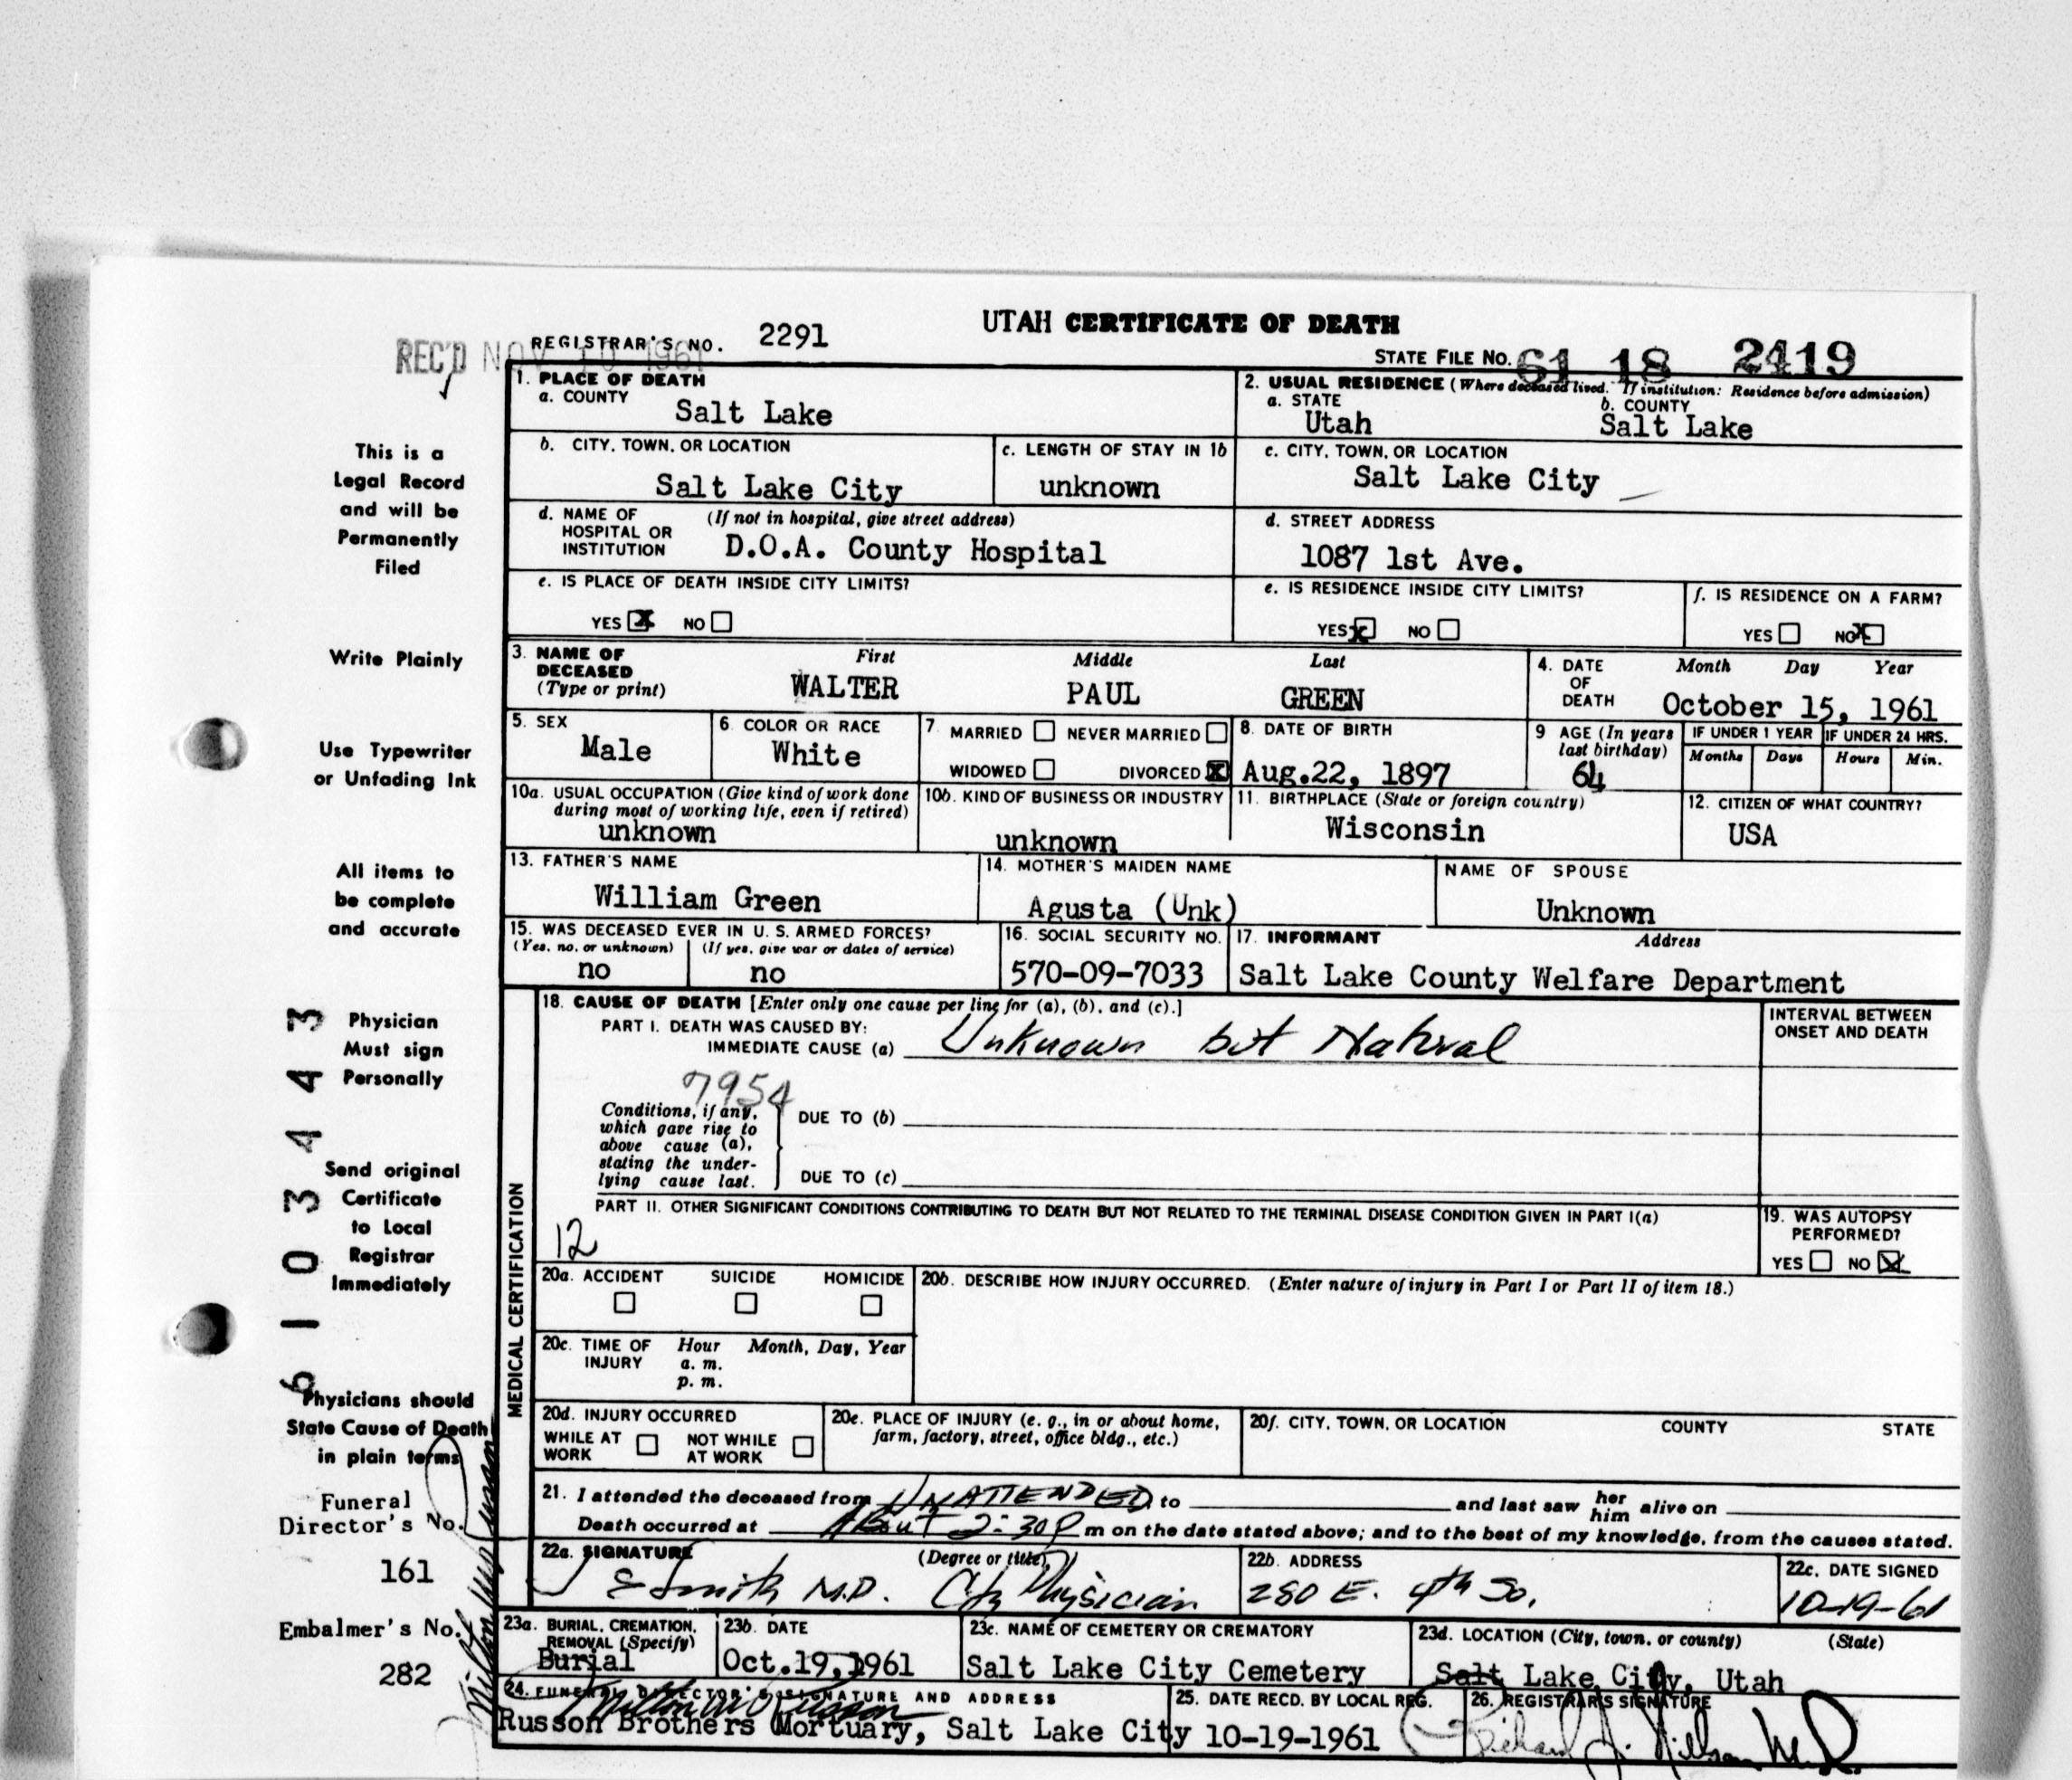 UTAH CERTIFICATE OF DEATH
REGISTRAR'S NO. 2291
REC'D NOV 10 1961
STATE FILE NO. 61 18 2419
1. PLACE OF DEATH
a. COUNTY
Salt Lake
2. USUAL RESIDENCE (Where deceased lived. If institution: Residence before admission)
a. STATE
Utah
b. COUNTY
Salt Lake
b. CITY, TOWN, OR LOCATION
Salt Lake City
c. LENGTH OF STAY IN 1b
unknown
c. CITY, TOWN, OR LOCATION
Salt Lake City
d. NAME OF HOSPITAL OR INSTITUTION
(If not in hospital, give street address)
D.O.A. County Hospital
d. STREET ADDRESS
1087 1st Ave.
e. IS PLACE OF DEATH INSIDE CITY LIMITS?
YES X NO
e. IS RESIDENCE INSIDE CITY LIMITS?
YES X NO
f. IS RESIDENCE ON A FARM?
YES NO X
3. NAME OF DECEASED
(Type or print)
First Middle Last
WALTER PAUL GREEN
4. DATE OF DEATH
Month Day Year
October 15, 1961
5. SEX
Male
6. COLOR OR RACE
White
7. MARRIED NEVER MARRIED
WIDOWED DIVORCED X
8. DATE OF BIRTH
Aug.22, 1897
9 AGE (In years last birthday)
64
IF UNDER 1 YEAR
Months Days
IF UNDER 24 HRS.
Hours Min.
10a. USUAL OCCUPATION (Give kind of work done during most of working life, even if retired)
unknown
10b. KIND OF BUSINESS OR INDUSTRY
unknown
11. BIRTHPLACE (State or foreign country)
Wisconsin
12. CITIZEN OF WHAT COUNTRY?
USA
13. FATHER'S NAME
William Green
14. MOTHER'S MAIDEN NAME
Agusta (Unk)
NAME OF SPOUSE
Unknown
15. WAS DECEASED EVER IN U. S. ARMED FORCES?
(Yes, no, or unknown) (If yes, give war or dates of service)
no no
16. SOCIAL SECURITY NO.
570-09-7033
17. INFORMANT Address
Salt Lake County Welfare Department
MEDICAL CERTIFICATION
18. CAUSE OF DEATH [Enter only one cause per line for (a), (b), and (c).]
PART I. DEATH WAS CAUSED BY:
IMMEDIATE CAUSE (a) Unknown but Natural
INTERVAL BETWEEN ONSET AND DEATH
7954
Conditions, if any, which gave rise to above cause (a), stating the underlying cause last.
DUE TO (b)
DUE TO (c)
PART II. OTHER SIGNIFICANT CONDITIONS CONTRIBUTING TO DEATH BUT NOT RELATED TO THE TERMINAL DISEASE CONDITION GIVEN IN PART I(a)
12
19. WAS AUTOPSY PERFORMED?
YES NO X
20a. ACCIDENT SUICIDE HOMICIDE
20b. DESCRIBE HOW INJURY OCCURRED. (Enter nature of injury in Part I or Part II of item 18.)
20c. TIME OF INJURY
Hour Month, Day, Year
a. m.
p. m.
20d. INJURY OCCURRED
WHILE AT WORK NOT WHILE AT WORK
20e. PLACE OF INJURY (e. g., in or about home, farm, factory, street, office bldg., etc.)
20f. CITY, TOWN, OR LOCATION COUNTY STATE
21. I attended the deceased from UNATTENDED to and last saw her him alive on
Death occurred at About 2:30 P m on the date stated above; and to the best of my knowledge, from the causes stated.
22a. SIGNATURE (Degree or title)
J E Smith M.D. City Physician
22b. ADDRESS
280 E. 4th So.
22c. DATE SIGNED
10-19-61
23a. BURIAL, CREMATION, REMOVAL (Specify)
Burial
23b. DATE
Oct.19,1961
23c. NAME OF CEMETERY OR CREMATORY
Salt Lake City Cemetery
23d. LOCATION (City, town, or county) (State)
Salt Lake City, Utah
24. FUNERAL DIRECTOR'S SIGNATURE AND ADDRESS
Russon Brothers Mortuary, Salt Lake City
25. DATE RECD. BY LOCAL REG.
10-19-1961
26. REGISTRAR'S SIGNATURE
This is a
Legal Record
and will be
Permanently
Filed
Write Plainly
Use Typewriter
or Unfading Ink
All items to
be complete
and accurate
Physician
Must sign
Personally
Send original
Certificate
to Local
Registrar
Immediately
Physicians should
State Cause of Death
in plain terms
Funeral
Director's No.
161
Embalmer's No.
282
61034443